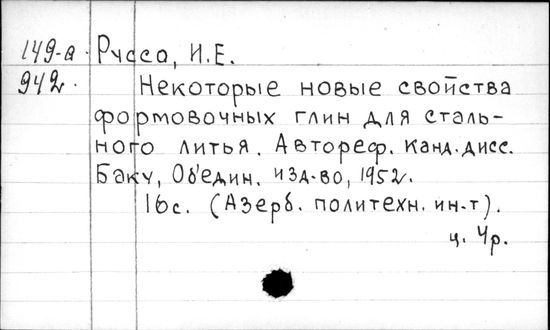 149-а. Руссо, И.Е.
942. Некоторые новые свойства
формовочных глин для сталь-
ного литья. Автореф. канд. дисс.
Баку, Об'един. изд-во, 1952.
16с. (Азерб. политехн. ин-т).
ц. 4р.